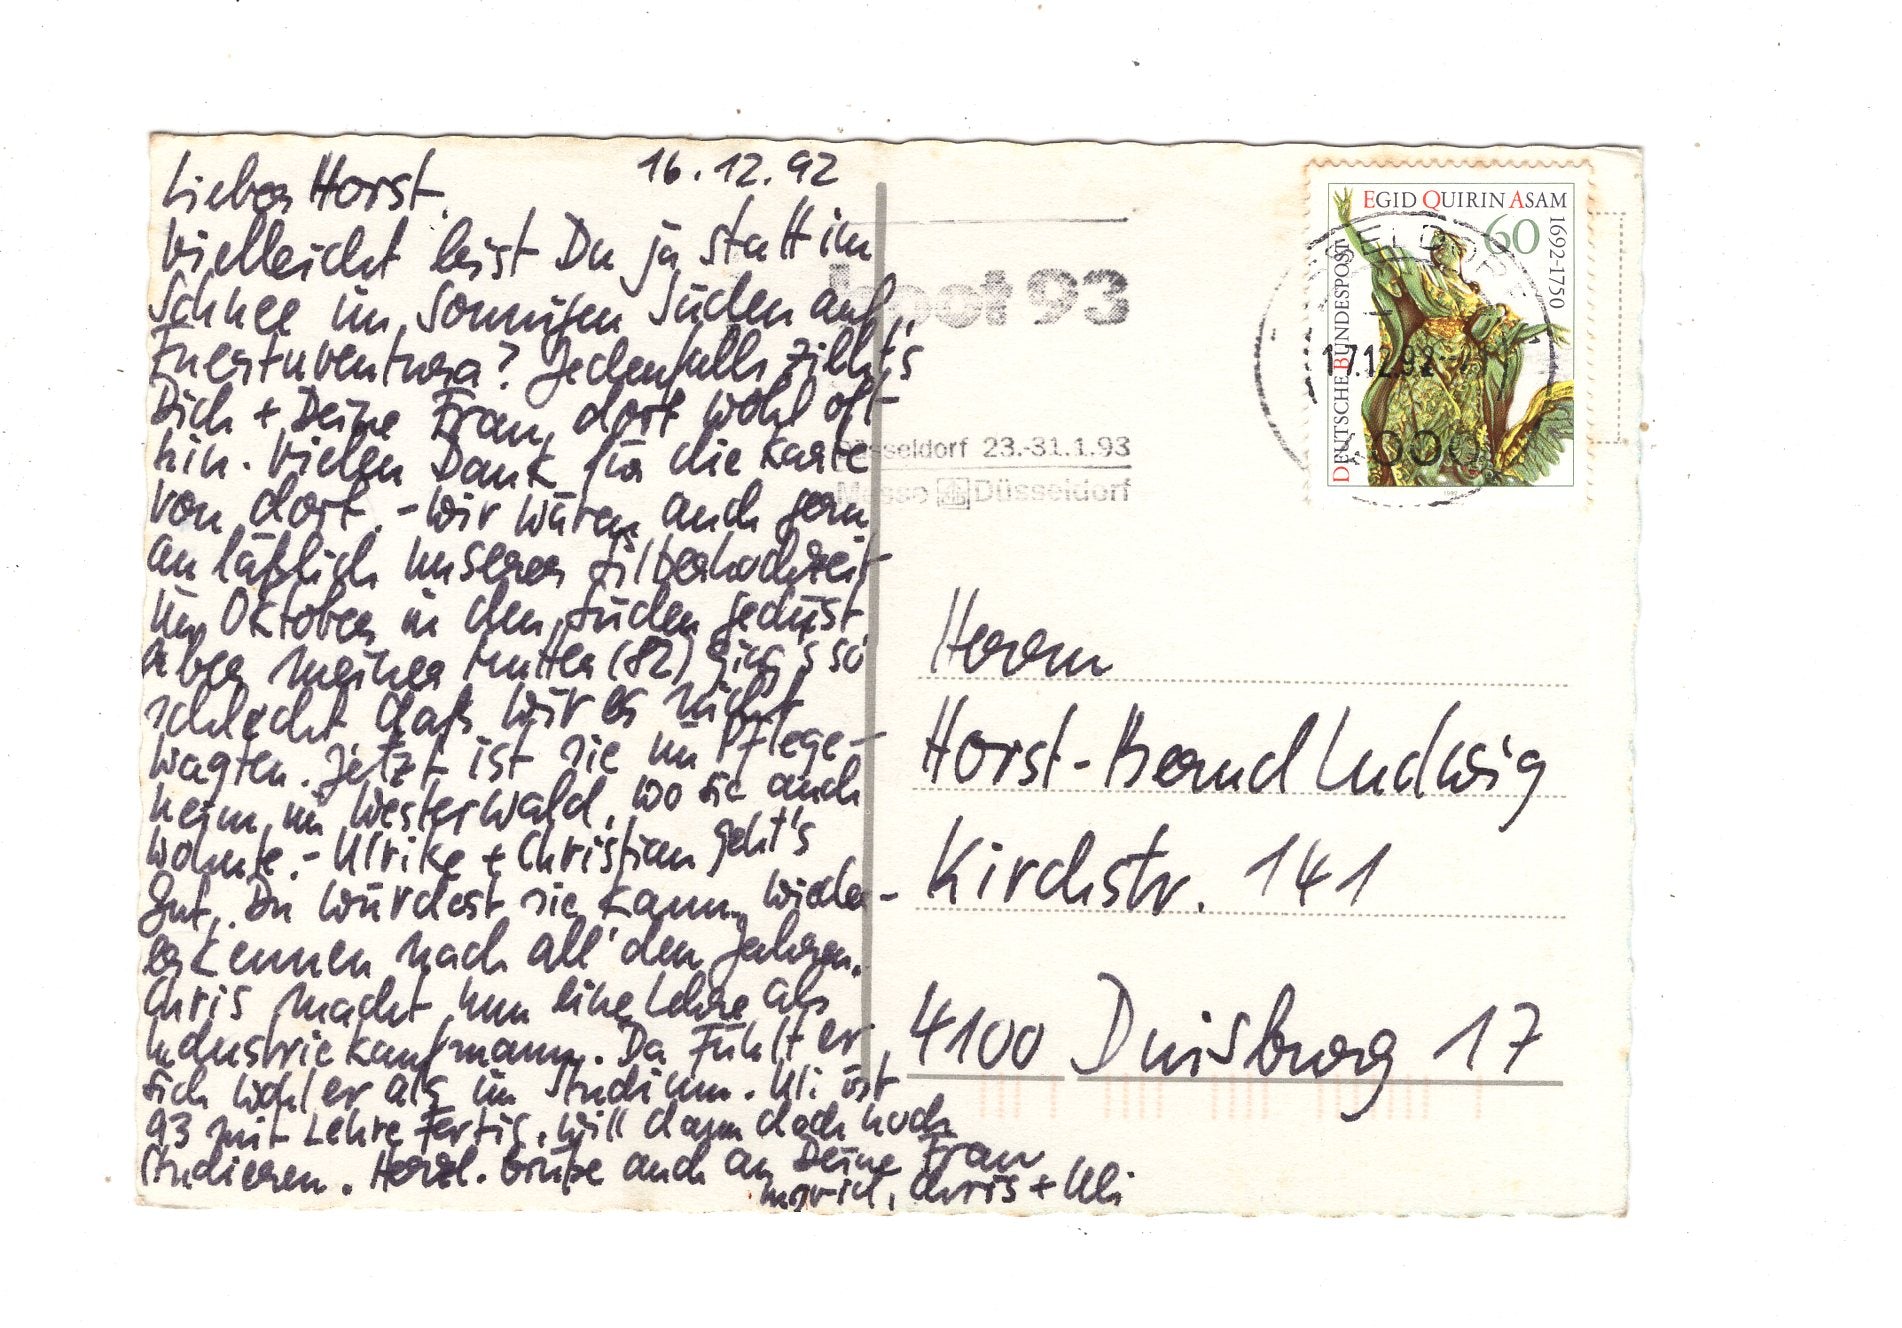 16.12.92
Lieber Horst.
Vielleicht liest Du ja statt im
Schnee im sonnigen Süden auf
Fuertuventura? Jedenfalls zieht's
Dich + Deine Frau dort wohl oft
hin. Vielen Dank für die Karte
von dort. - Wir wären auch gern
anläßlich unserer Silberhochzeit
im Oktober in den Süden gedüst
aber meiner Mutter (82) ging's so
schlecht daß wir es nicht
wagten. Jetzt ist sie im Pflege-
heim im Westerwald, wo sie auch
wohnte. - Ulrike + Christian geht's
gut. Du würdest sie kaum wieder-
erkennen nach all' den Jahren.
Chris macht nun eine Lehre als
Industriekaufmann. Da fühlt er
sich wohler als im Studium. Uli ist
93 mit Lehre fertig, will dann doch noch
studieren. Herzl. Grüße auch an Deine Frau
Chris + Uli
boot 93
Düsseldorf 23.-31.1.93
Messe Düsseldorf
EGID QUIRIN ASAM
1692-1750
60
DEUTSCHE BUNDESPOST
1992
17.12.92
Herrn
Horst-Bernd Ludwig
Kirchstr. 141
4100 Duisburg 17